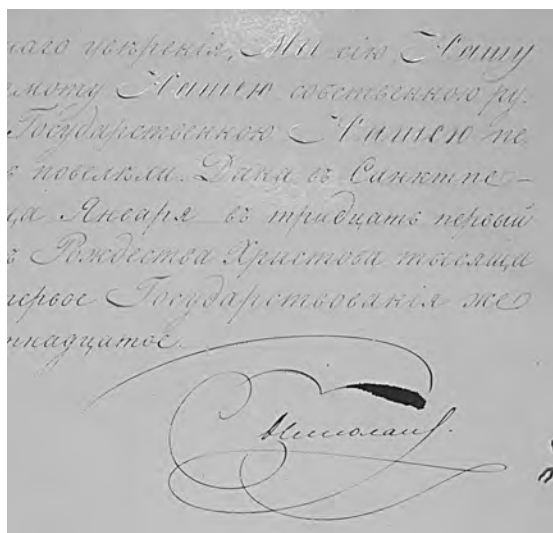 наго увѣренія, Мы сію Нашу
моту Нашею собственною ру-
Государственною Нашею пе
повелѣли. Дана въ Санктпе-
ца Января въ тридцать первый
Рождества Христова тысяща
первое Государствованія же
надцатое.
Николай.